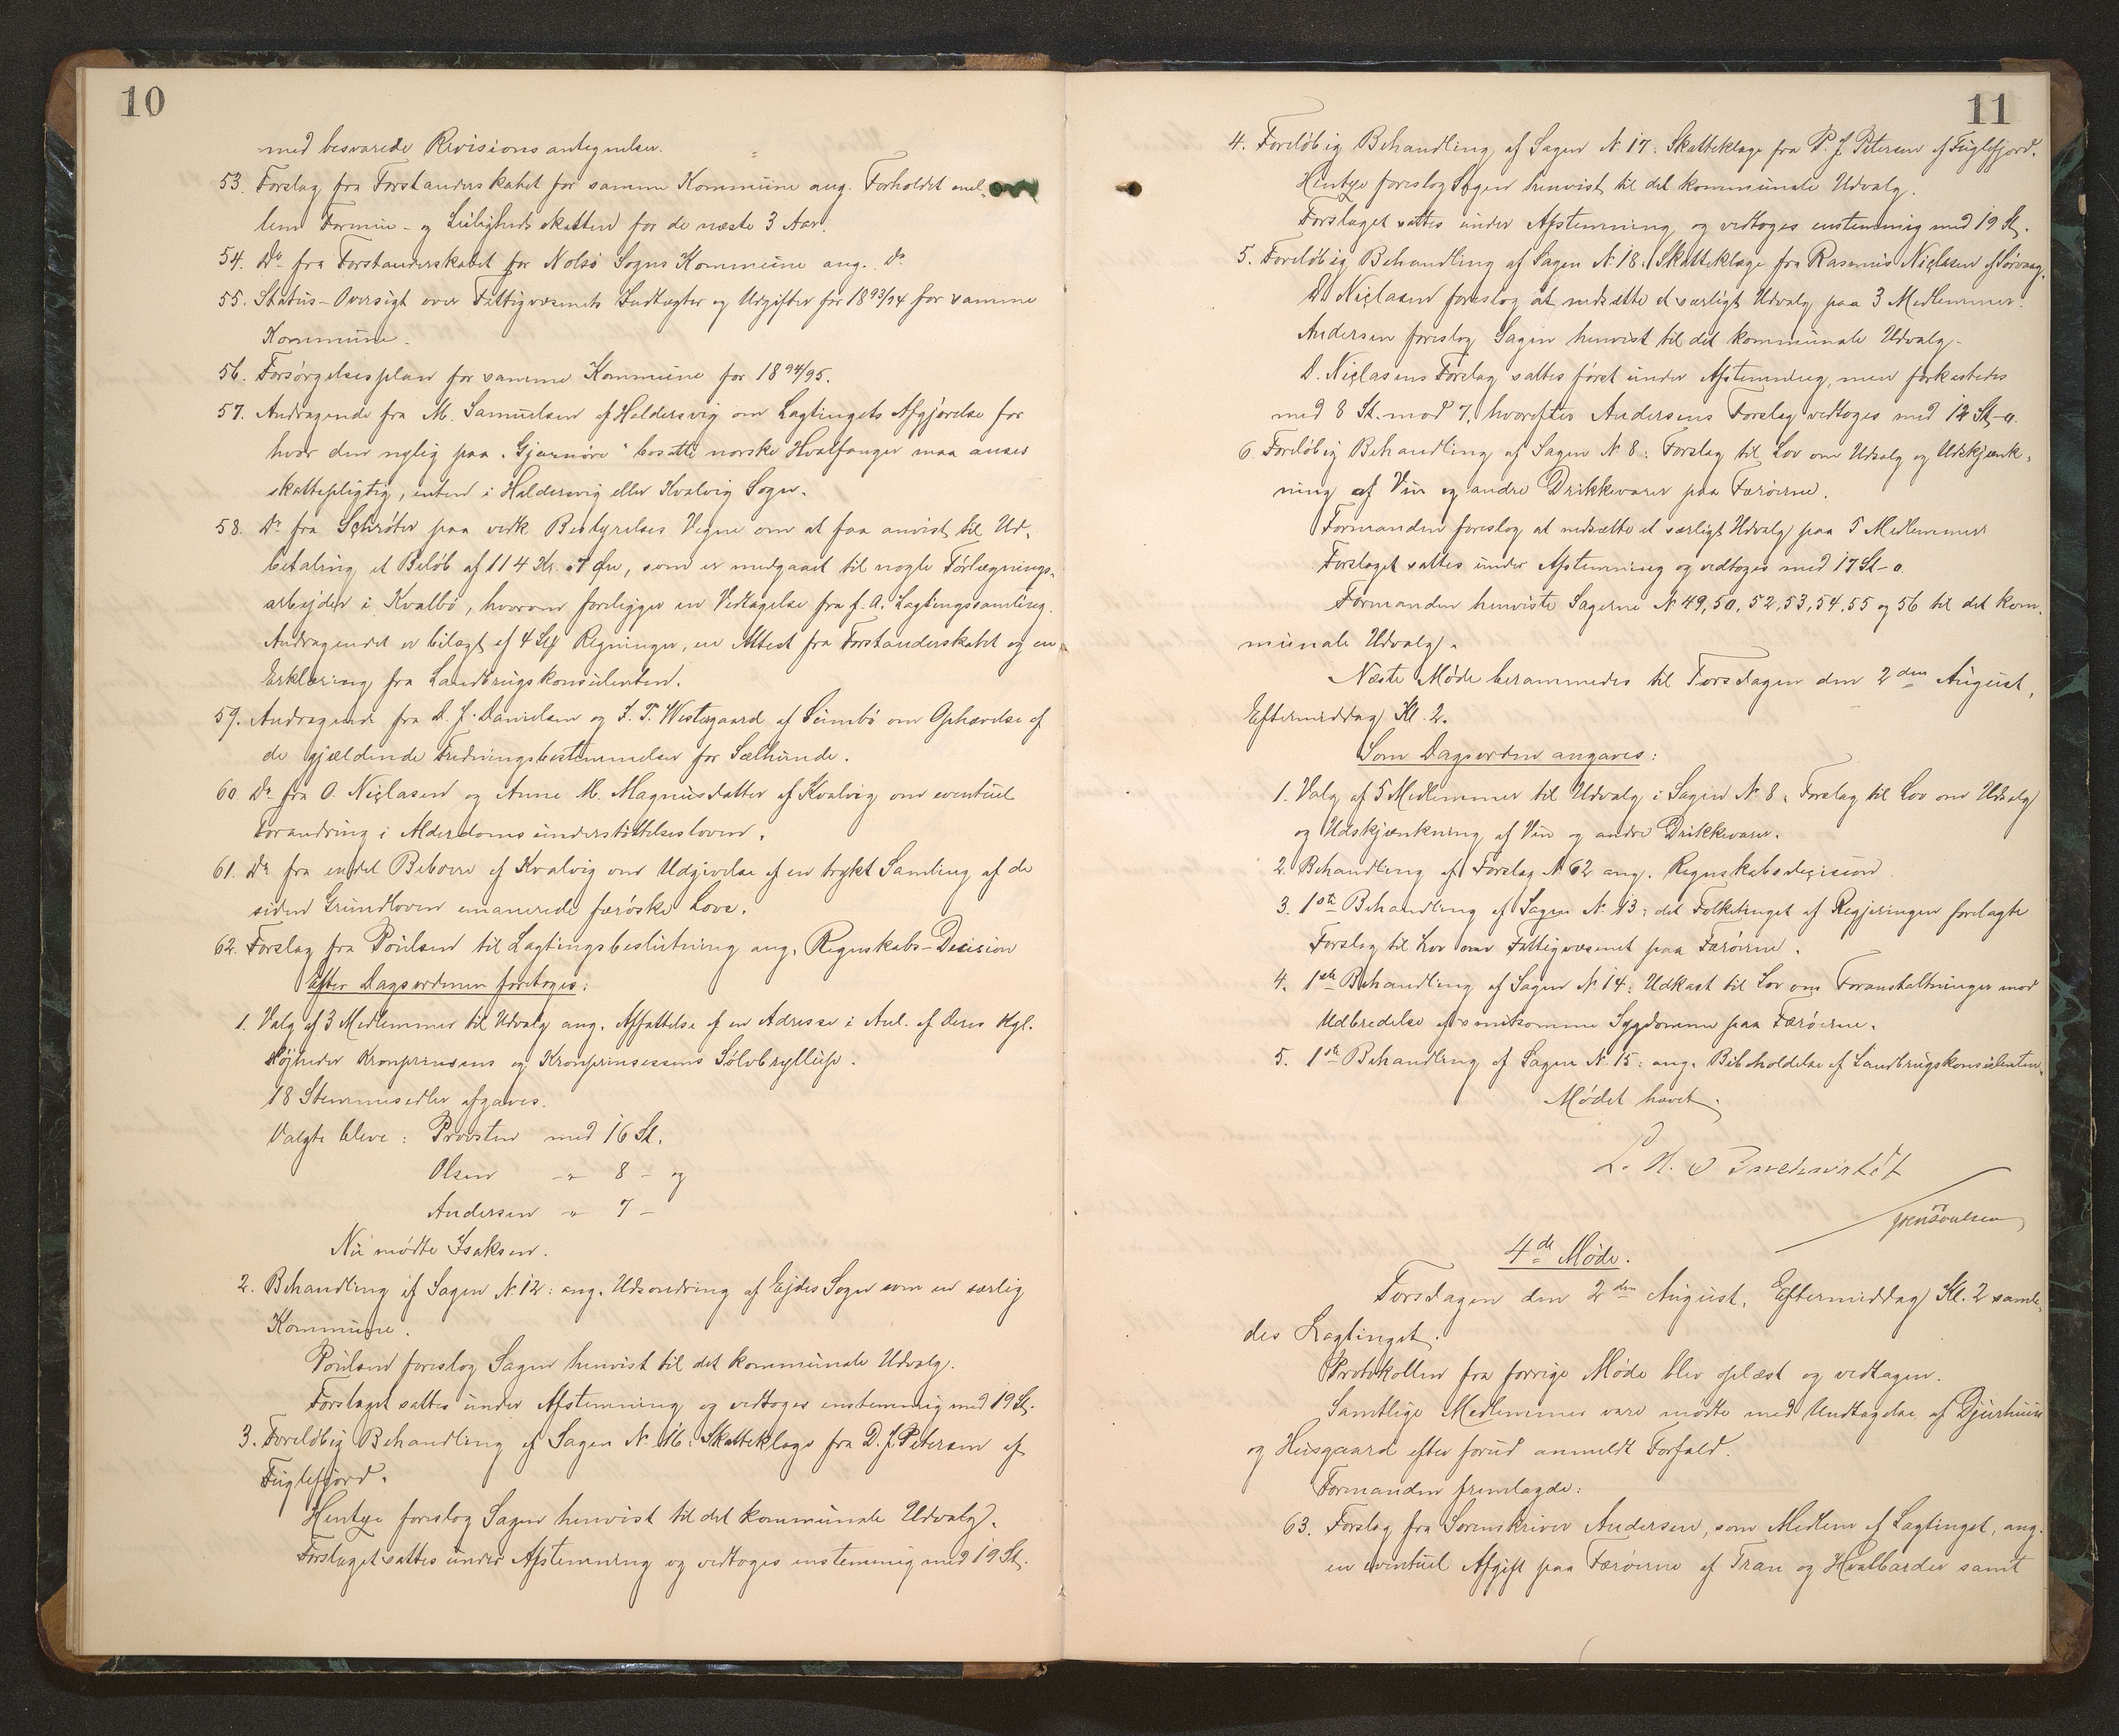 10
med besvarede Revisionsantegnelser.
53. Forslag fra Forstanderskabet for samme Kommune ang. Forholdet mel-
lem Formue- og Leilighedsskatten for de næste 3 Aar.
54. Do fra Forstanderskabet for Nolsø Sogns Kommune ang. Do
55. Status-Oversigt over Fattigvæsenets Indtægter og Udgifter for 1893/94 for samme
Kommune.
56. Forsørgelsesplan for samme Kommune for 1894/95.
57. Andragende fra M. Samuelsen af Haldersvig om Lagtingets Afgjørelse for
hvor den nylig paa "Gjarnøre" bosatte norske Hvalfanger maa anses
skattepligtig, enten i Haldersvig eller Kvalvig Sogn.
58. Do fra Schrøter paa vedk Bestyrelses Vegne om at faa anvist til Ud-
betaling et Beløb af 114 Kr. 07 Øre, som er medgaaet til nogle Tørlægnings-
arbejder i Kvalbø, hvorom foreligger en Vedtagelse fra f. A. Lagtingssamling.
Andragendet er bilagt af 4 Regninger, en Attest fra Forstanderskabet og en
Erklæring fra Landbrugskonsulenten.
59. Andragende fra D. J. Danielsen og J. T. Westergaard af Sumbø om Ophævelse af
de gjældende Fredningsbestemmelser for Sælhunde.
60. Do fra O. Niclasen og Anne M. Magnusdatter af Kvalvig om eventuel
Forandring i Alderdomsunderstøttelsesloven.
61. Do fra endel Beboere af Kvalvig om Udgivelse af en trykt Samling af de
siden Grundloven emanerede færøske Love.
62. Forslag fra Poulsen til Lagtingsbeslutning ang. Regnskabs-Decision
Efter Dagsordenen foretoges:
1. Valg af 3 Medlemmer til Udvalg ang. Affattelse af en Adresse i Anl. af Deres Kgl.
Højheder Kronprinsens og Kronprinsessens Sølvbryllup.
18 Stemmesedler afgaves.
Valgte bleve: Provsten med 16 St.
Olsen -"- 8 - og
Andersen -"- 7 -
Nu mødte Isaksen.
2. Behandling af Sagen No 12: ang. Udsondring af Ejdes Sogn som en særlig
Kommune.
Poulsen foreslog Sagen henvist til det kommunale Udvalg.
Forslaget sattes under Afstemning og vedtoges enstemmig med 19 St.
3. Foreløbig Behandling af Sagen No 16: Skatteklage fra D. J. Petersen af
Fuglefjord.
Hentze foreslog Sagen henvist til det kommunale Udvalg.
Forslaget sattes under Afstemning og vedtoges enstemmig med 19 St.
11
4. Foreløbig Behandling af Sagen No 17: Skatteklage fra P. J. Petersen af Fuglefjord.
Hentze foreslog Sagen henvist til det kommunale Udvalg.
Forslaget sattes under Afstemning og vedtoges enstemmig med 19 St.
5. Foreløbig Behandling af Sagen No 18: Skatteklage fra Rasmus Niclasen af Sørvaag.
D. Niclasen foreslog at nedsætte et særligt Udvalg paa 3 Medlemmer.
Andersen foreslog Sagen henvist til det kommunale Udvalg.
D. Niclasens Forslag sattes først under Afstemning, men forkastedes
med 8 St. mod 7, hvorefter Andersens Forslag vedtoges med 12 St-0.
6. Foreløbig Behandling af Sagen No 8: Forslag til Lov om Udsalg og Udskjænk-
ning af Vin og andre Drikkevarer paa Færøerne.
Formanden foreslog at nedsætte et særligt Udvalg paa 5 Medlemmer
Forslaget sattes under Afstemning og vedtoges med 17 St-0.
Formanden henviste Sagerne No 49, 50, 52, 53, 54, 55 og 56 til det kom-
munale Udvalg.
Næste Møde berammedes til Torsdagen den 2den August,
Eftermiddag Kl. 2.
Som Dagsorden angaves:
1. Valg af 5 Medlemmer til Udvalg i Sagen No 8: Forslag til Lov om Udsalg
og Udskjænkning af Vin og andre Drikkevarer.
2. Behandling af Forslag No 62 ang. Regnskabsdecision.
3. 1ste Behandling af Sagen No 13: det Folketinget af Regjeringen forelagte
Forslag til Lov om Fattigvæsenet paa Færøerne.
4. 1ste Behandling af Sagen No 14: Udkast til Lov om Foranstaltninger mod
Udbredelse af smitsomme Sygdomme paa Færøerne.
5. 1ste Behandling af Sagen No 15: ang. Bibeholdelse af Landbrugskonsulenten.
Mødet hævet.
Jens Poulsen
4de Møde.
Torsdagen den 2den August, Eftermiddag Kl. 2 samle-
des Lagtinget.
Protokollen fra forrige Møde blev oplæst og vedtagen.
Samtlige Medlemmer vare mødte med Undtagelse af Djurhuus
og Husgaard efter forud anmeldt Forfald.
Formanden fremlagde:
63. Forslag fra Sorenskriver Andersen, som Medlem af Lagtinget, ang.
en eventuel Afgift paa Færøerne af Tran og Hvalbarder samt